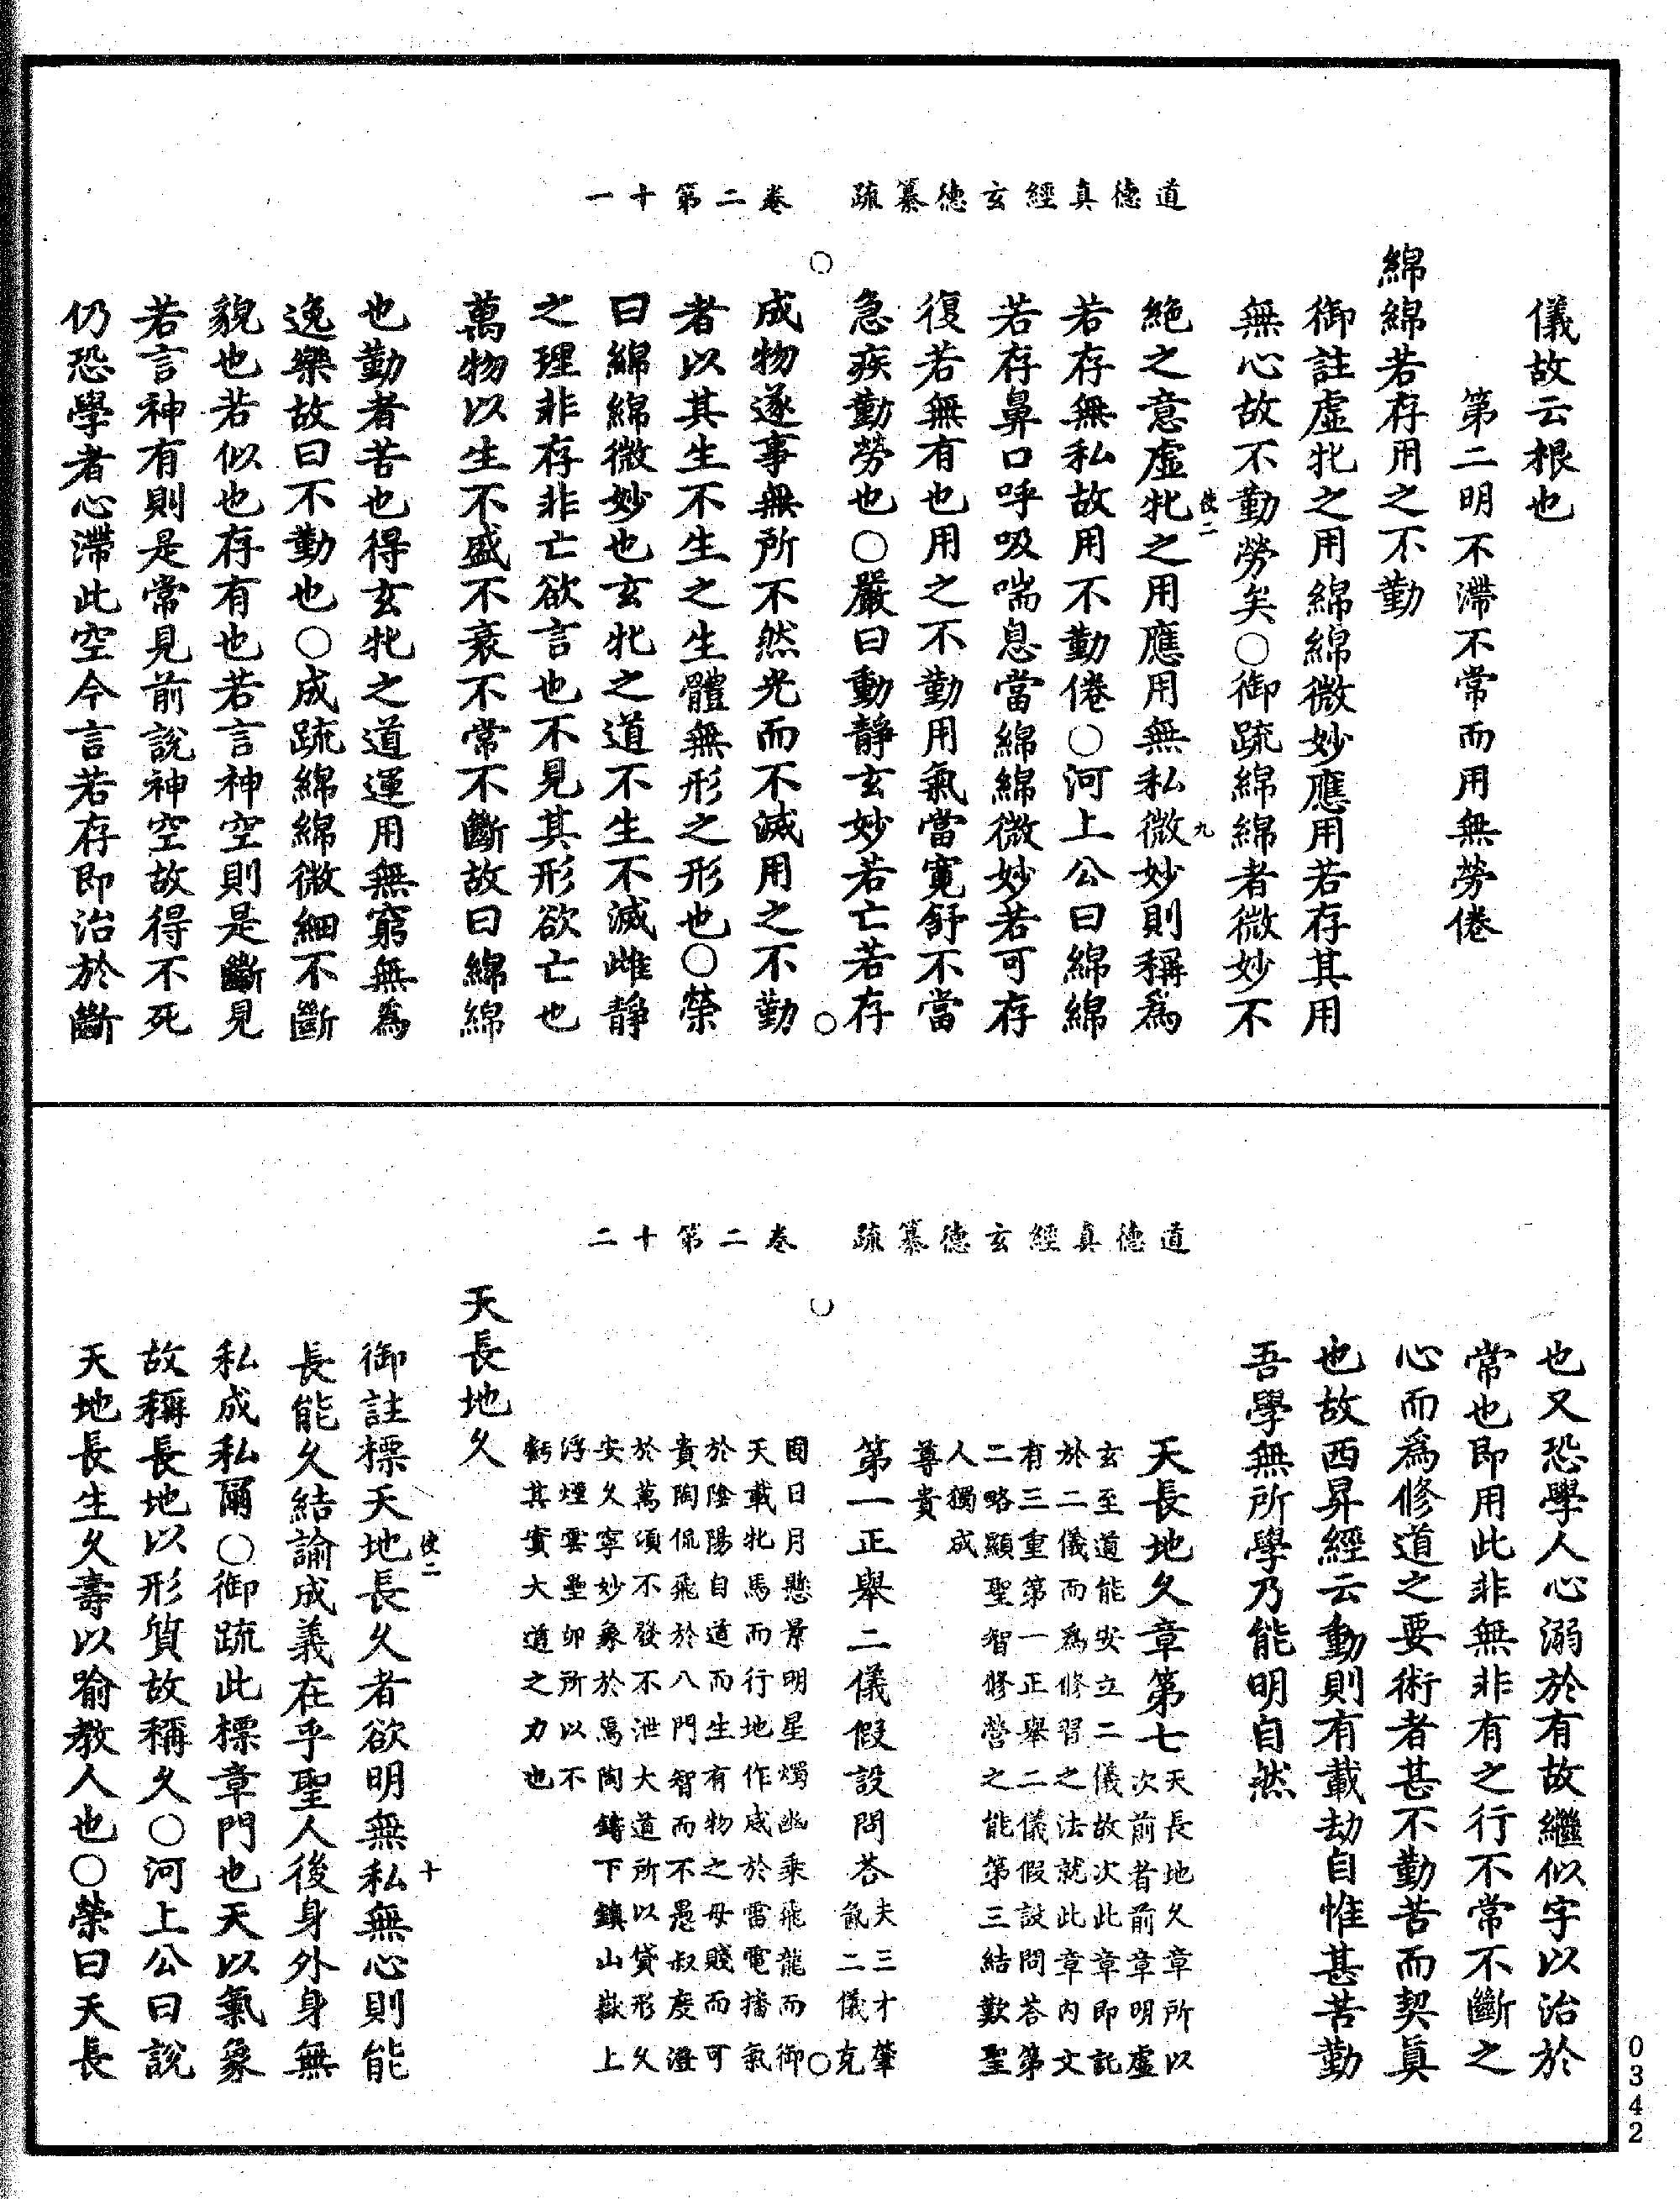 道德真經玄德纂疏　卷二第十一
儀故云根也
第二明不滯不常而用無勞倦
綿綿若存用之不勤
御註虛牝之用綿綿微妙應用若存其用
無心故不勤勞矣○御疏綿綿者微妙不
使二　九
絕之意虛牝之用應用無私微妙則稱為
若存無私故用不勤倦○河上公曰綿綿
若存鼻口呼吸喘息當綿綿微妙若可存
復若無有也用之不勤用氣當寬舒不當
急疾勤勞也○嚴曰動靜玄妙若亡若存
成物遂事無所不然光而不滅用之不勤
者以其生不生之生體無形之形也○榮
曰綿綿微妙也玄牝之道不生不滅雌靜
之理非存非亡欲言也不見其形欲亡也
萬物以生不盛不衰不常不斷故曰綿綿
也勤者苦也得玄牝之道運用無窮無為
逸樂故曰不勤也○成疏綿綿微細不斷
貌也若似也存有也若言神空則是斷見
若言神有則是常見前說神空故得不死
仍恐學者心滯此空今言若存即治於斷
道德真經玄德纂疏　卷二第十二
也又恐學人心溺於有故繼似字以治於
常也即用此非無非有之行不常不斷之
心而為修道之要術者甚不勤苦而契真
也故西昇經云動則有載劫自惟甚苦勤
吾學無所學乃能明自然
天長地久章第七
天長地久章所以
次前者前章明虛
玄至道能安立二儀故次此章即託
於二儀而為修習之法就此章內文
有三重第一正舉二儀假設問答第
二略顯聖智修營之能第三結歎聖
人獨成
尊貴
第一正舉二儀假設問答
夫三才肇
氤二儀克
囿日月懸景明星燭幽乘飛龍而御
天載牝馬而行地作威於雷電播氣
於陰陽自道而生有物之母賤而可
貴陶侃飛於八門智而不愚叔度澄
於萬頃不發不泄大道所以貸形久
安久寧妙象於焉陶鑄下鎮山嶽上
浮煙雲壘卵所以不
虧其實大道之力也
天長地久
御註標天地長久者欲明無私無心則能
使二　十
長能久結諭成義在乎聖人後身外身無
私成私爾○御疏此標章門也天以氣象
故稱長地以形質故稱久○河上公曰說
天地長生久壽以喻教人也○榮曰天長
0342